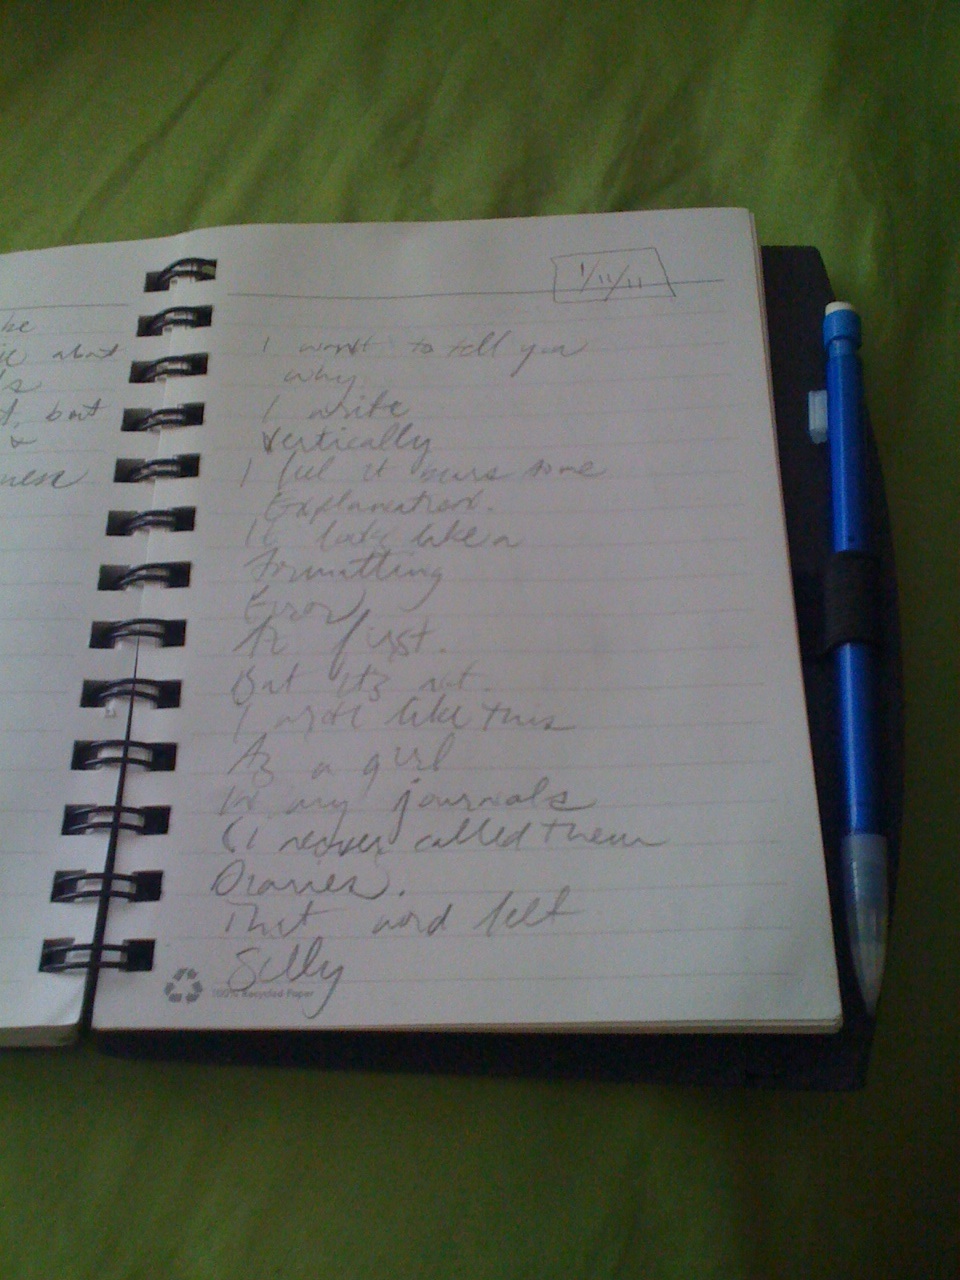 1/11/11
I want to tell you
why
I write
Vertically
I feel it bears some
Explanation.
It looks like a
Formatting
Error
At first.
But it's not.
I wrote like this
As a girl
In my journals
(I never called them
Diaries).
That word felt
Silly
100% Recycled Paper
he
about
's
but
&
ness